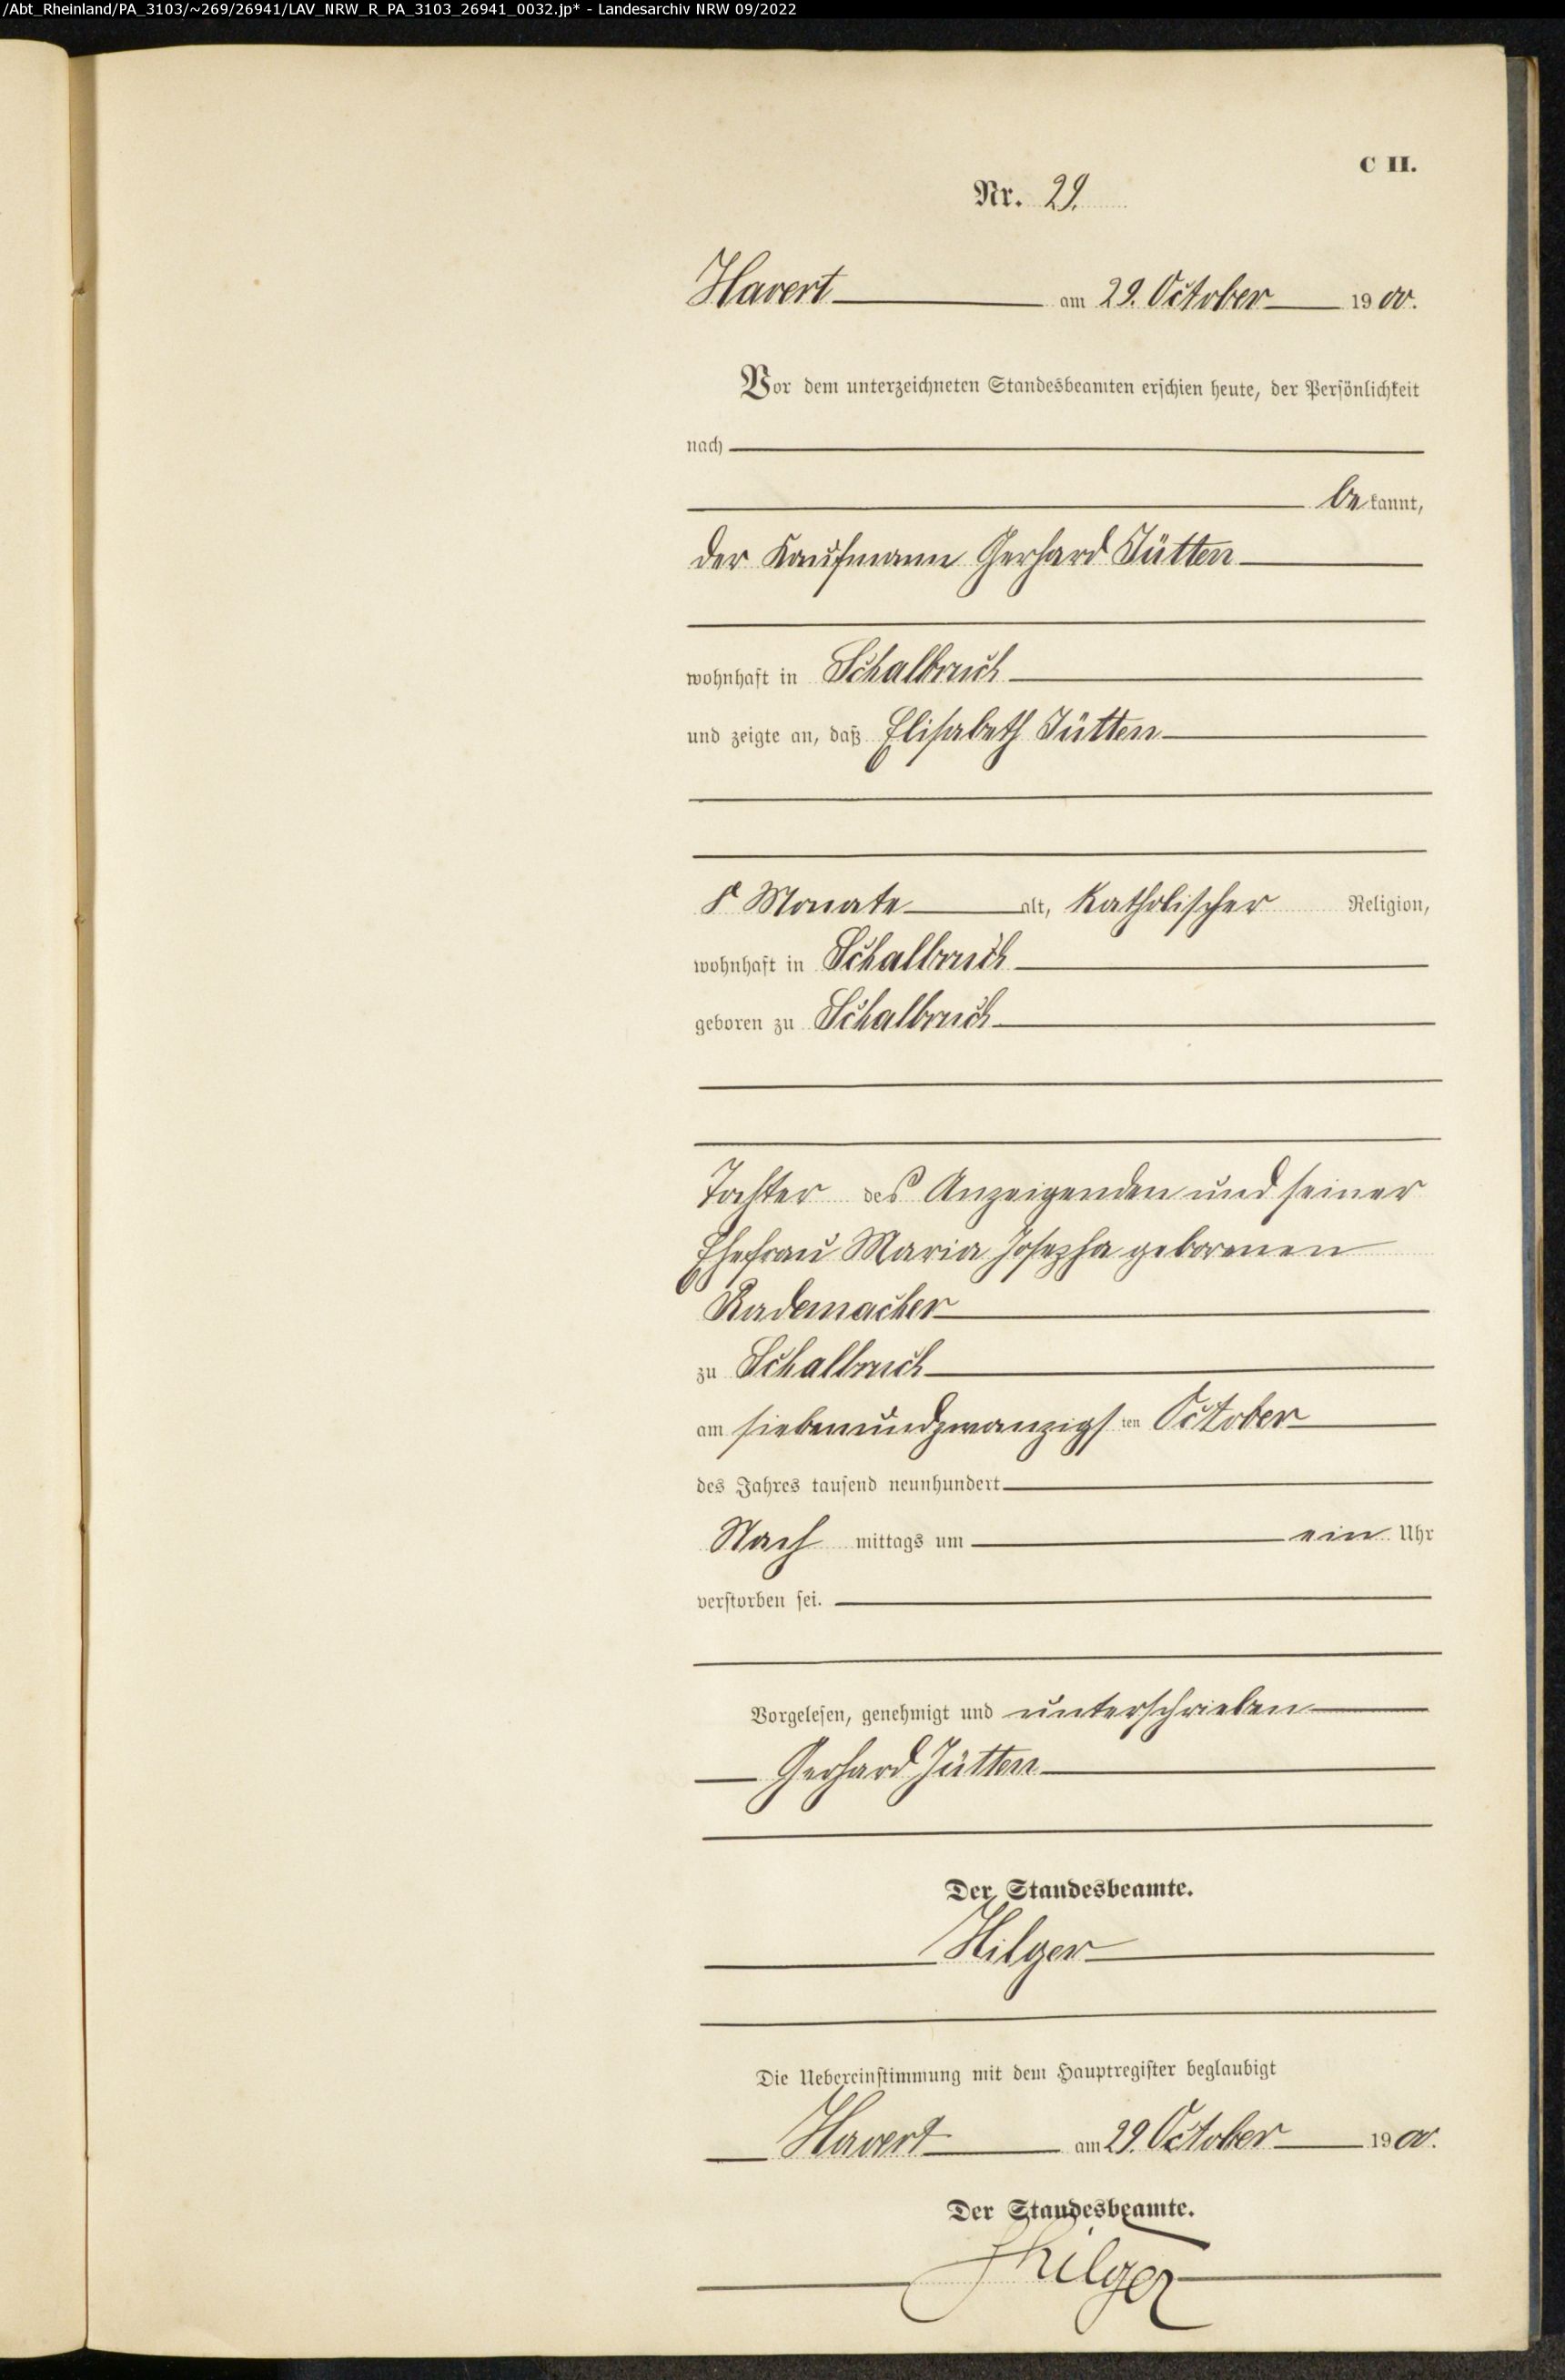 /Abt_Rheinland/PA_3103/~269/26941/LAV_NRW_R_PA_3103_26941_0032.jp* - Landesarchiv NRW 09/2022
C II.
Nr. 29.
Havert am 29. October 1900.
Vor dem unterzeichneten Standesbeamten erschien heute, der Persönlichkeit
nach
bekannt,
der Kaufmann Gerhard Jütten
wohnhaft in Schalbruch
und zeigte an, daß Elisabeth Jütten
8 Monate alt, katholischer Religion,
wohnhaft in Schalbruch
geboren zu Schalbruch
Tochter des Anzeigenden und seiner
Ehefrau Maria Josepha geborenen
Rademacher
zu Schalbruch
am siebenundzwanzigsten October
des Jahres tausend neunhundert
Nachmittags um ein Uhr
verstorben sei.
Vorgelesen, genehmigt und unterschrieben
Gerhard Jütten
Der Standesbeamte.
Hilger
Die Uebereinstimmung mit dem Hauptregister beglaubigt
Havert am 29. October 1900.
Der Standesbeamte.
Hilger